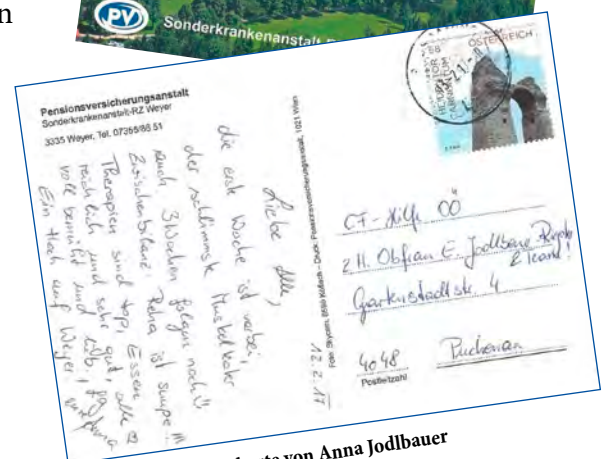 n
PV
Sonderkrankenanstalt
Pensionsversicherungsanstalt
Sonderkrankenanstalt-RZ Weyer
3335 Weyer, Tel. 07355/88 51
Liebe Alle,
die erste Woche ist vorbei,
der schlimmste Muskelkater
auch. 3 Wochen folgen noch
Zwischenbilanz: Reha ist super!!!
Therapien sind top, Essen
reichlich und sehr gut, alle
voll bemüht und lieb,
Ein Hoch auf Weyer,
12.2.17
ÖSTERREICH
HEIDENTOR
CARNUNTUM
CF-Hilfe OÖ
z.H. Obfrau E. Jodlbauer
& Team!
Gartenstadtstr. 4
4048 Puchenau
Postleitzahl
von Anna Jodlbauer